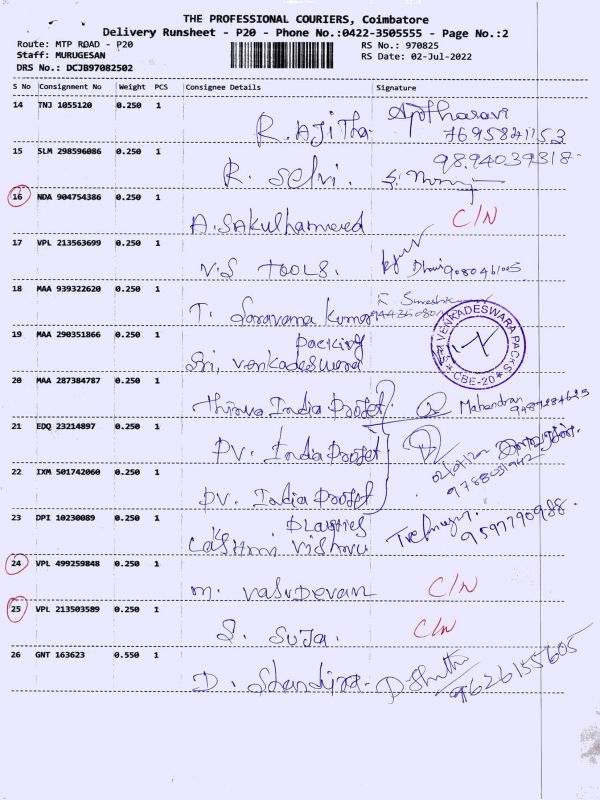 THE PROFESSIONAL COURIERS, Coimbatore
Delivery Runsheet - P20 - Phone No.:0422-3505555 - Page No.:2
Route: MTP ROAD - P20
Staff: MURUGESAN
DRS No.: DCJB97082502
RS No.: 970825
RS Date: 02-Jul-2022
S No Consignment No Weight PCS Consignee Details Signature
14 TNJ 1055120 0.250 1
R. Ajitha
15 SLM 298596086 0.250 1
9894039318
R. Selvi.
16 NDA 904754386 0.250 1
A. Sakulhameed C/N
17 VPL 213563699 0.250 1
V.S TOOLS.
18 MAA 939322620 0.250 1
T. Saravana Kumar
19 MAA 290351866 0.250 1
packing
Sri. Venkadeswara
SRI VENKADESWARA PACKS
CBE-20
20 MAA 287384787 0.250 1
India Mahendran
21 EDQ 23214897 0.250 1
PV. India
22 IXM 501742060 0.250 1
PV. India
23 DPI 10230089 0.250 1
9597790988
Vishnu
24 VPL 499259848 0.250 1
M. Vasudevan C/N
25 VPL 213503589 0.250 1
S. Suja. C/N
26 GNT 163623 0.550 1
D. 9626155605